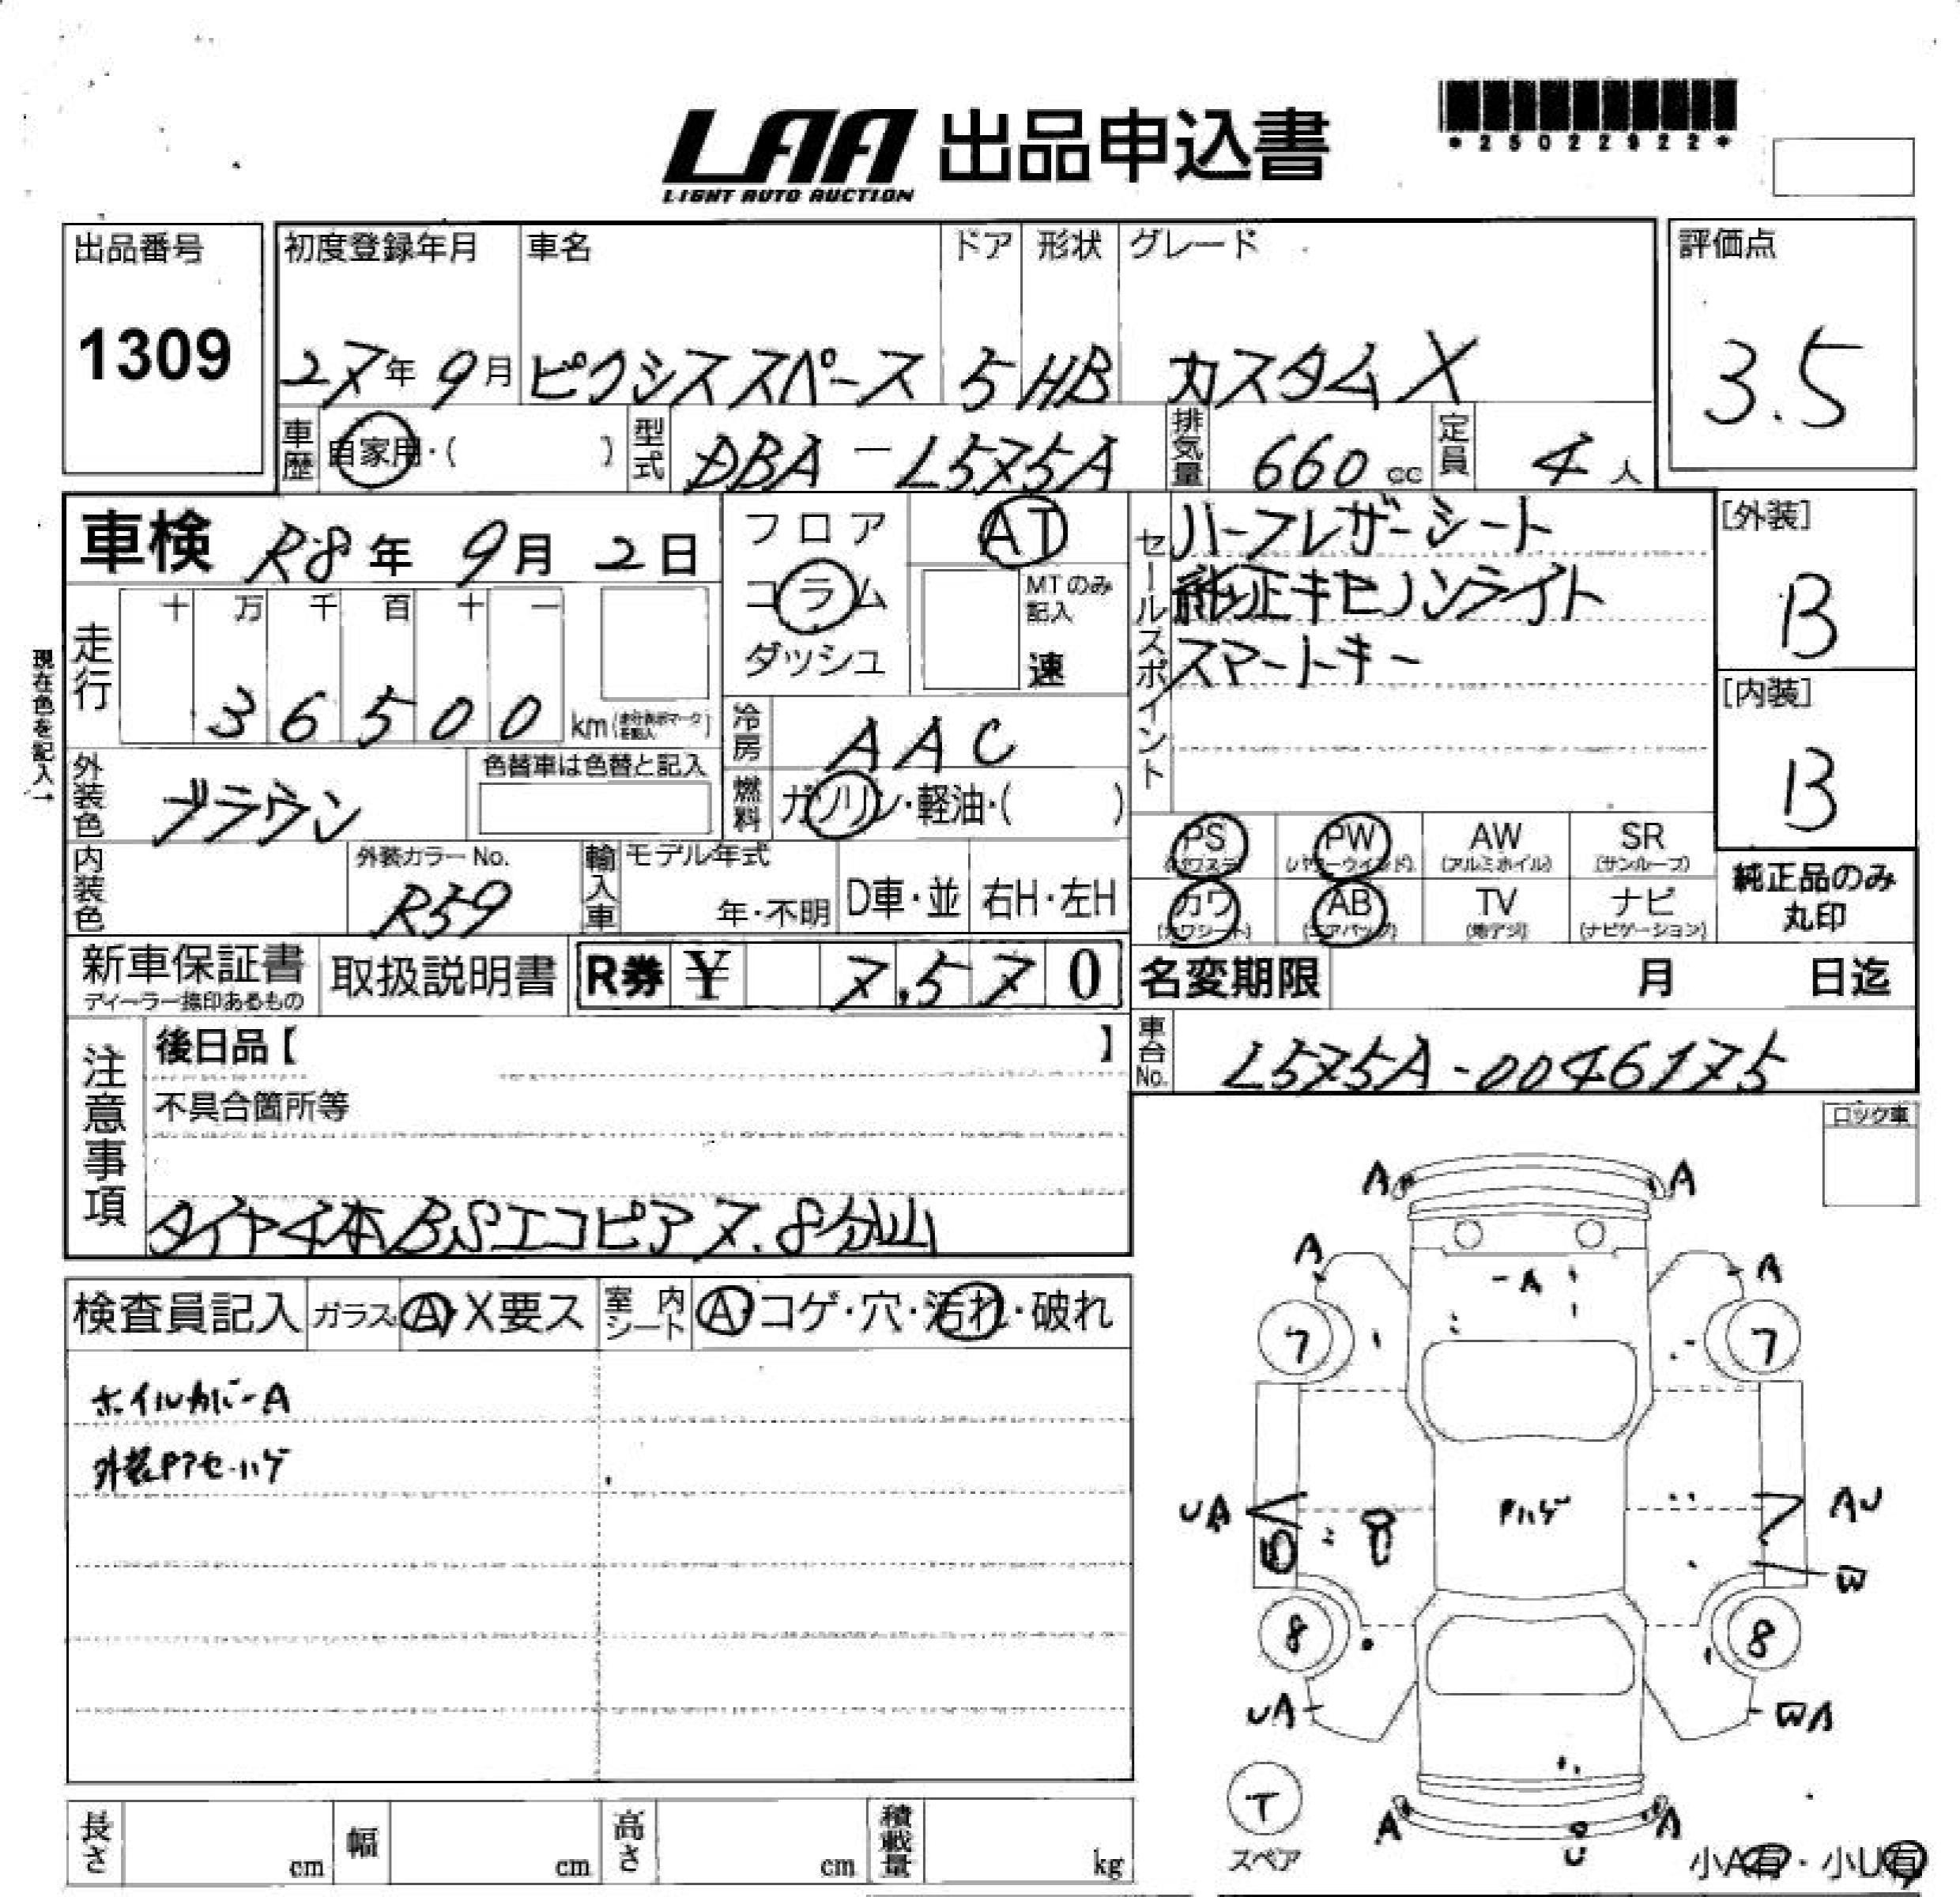 LAA 出品申込書
LIGHT AUTO AUCTION
*25022922*
出品番号
1309
初度登録年月 車名 ドア 形状 グレード
27年 9月 ピクシススペース 5 HB カスタムX
評価点
3.5
車歴 自家用・( ) 型式 DBA-L575A 排気量 660cc 定員 4人
車検 R8年 9月 2日
フロア
コラム
ダッシュ
AT
MTのみ記入
速
セールスポイント
ハーフレザーシート
純正キセノンライト
スマートキー
[外装]
B
[内装]
B
現在色を記入↑
走行
十 万 千 百 十 一
3 6 5 0 0 km
冷房 AAC
燃料 ガソリン・軽油・( )
外装色 ブラウン
色替車は色替と記入
内装色
外装カラーNo.
R59
輸入車 モデル年式
年・不明 D車・並 右H・左H
PS(パワステ) PW(パワーウインド) AW(アルミホイル) SR(サンルーフ)
カワ(カワシート) AB(エアバッグ) TV(地デジ) ナビ(ナビゲーション)
純正品のみ
丸印
新車保証書
ディーラー捺印あるもの
取扱説明書
R券 ¥ 7,570
名変期限 月 日迄
車台No. L575A-0046175
注意事項
後日品【 】
不具合箇所等
タイヤ4本BSエコピア7.8分山
ロック車
検査員記入 ガラス A・X要ス 室内シート A・コゲ・穴・汚れ・破れ
ホイルカバーA
A A
A A
A
7 7
UA AU
W
8 8
UA WA
T
スペア
A A
U
小A有・小U有
長さ cm 幅 cm 高さ cm 積載量 kg